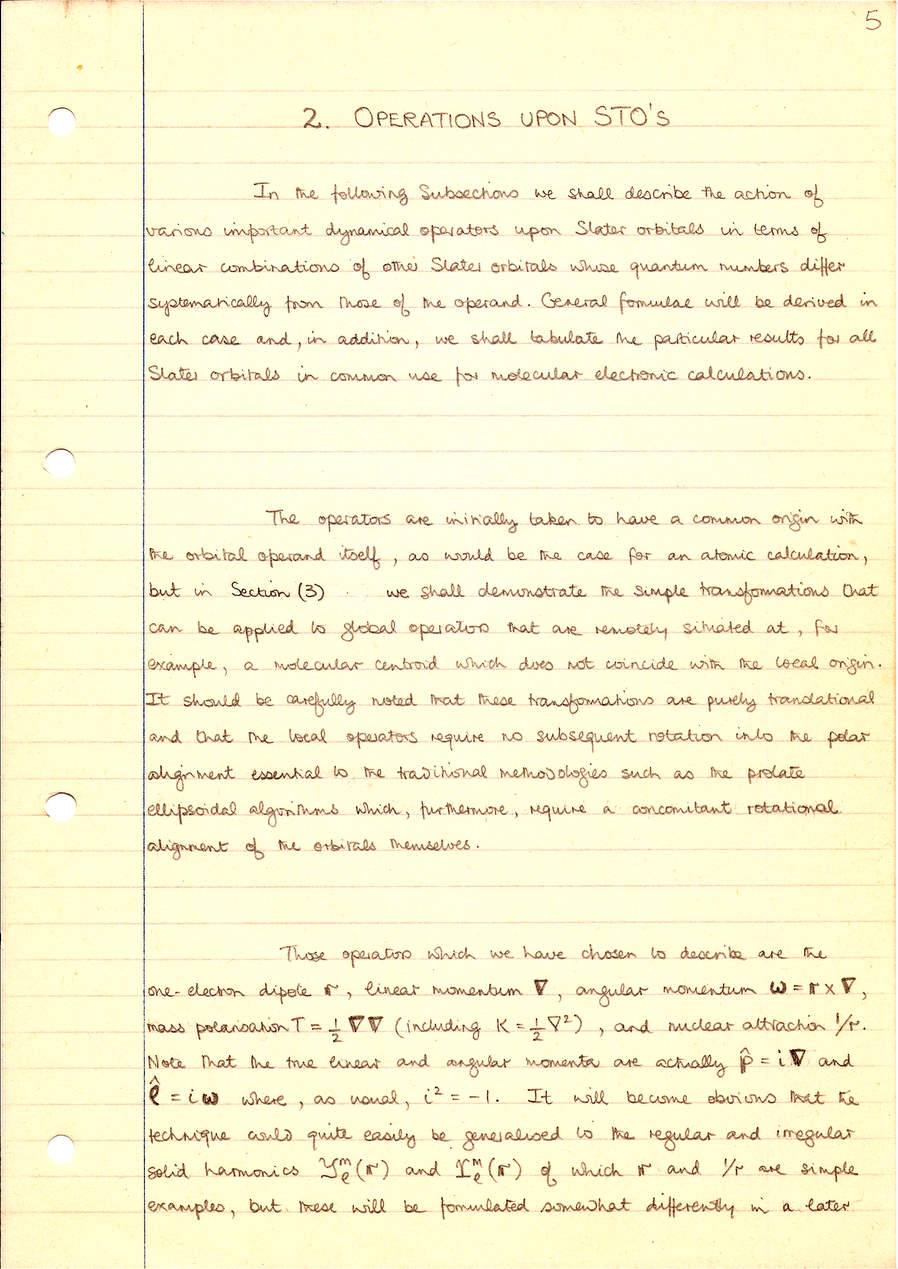 5
2. OPERATIONS UPON STO'S
In the following Subsections we shall describe the action of
various important dynamical operators upon Slater orbitals in terms of
linear combinations of other Slater orbitals whose quantum numbers differ
systematically from those of the operand. General formulae will be derived in
each case and, in addition, we shall tabulate the particular results for all
Slater orbitals in common use for molecular electronic calculations.
The operators are initially taken to have a common origin with
the orbital operand itself, as would be the case for an atomic calculation,
but in Section (3) we shall demonstrate the simple transformations that
can be applied to global operators that are remotely situated at, for
example, a molecular centroid which does not coincide with the local origin.
It should be carefully noted that these transformations are purely translational
and that the local operators require no subsequent rotation into the polar
alignment essential to the traditional methodologies such as the prolate
ellipsoidal algorithms which, furthermore, require a concomitant rotational
alignment of the orbitals themselves.
Those operators which we have chosen to describe are the
one-electron dipole 𝐫, linear momentum 𝛁, angular momentum 𝛚 = 𝐫 × 𝛁,
mass polarisation T = ½ 𝛁𝛁 (including K = ½∇²), and nuclear attraction 1/r.
Note that the true linear and angular momenta are actually p̂ = i𝛁 and
ℓ̂ = i𝛚 where, as usual, i² = -1. It will become obvious that the
technique could quite easily be generalised to the regular and irregular
solid harmonics 𝒴ₗᵐ(𝐫) and Yₗᵐ(𝐫) of which 𝐫 and 1/r are simple
examples, but these will be formulated somewhat differently in a later